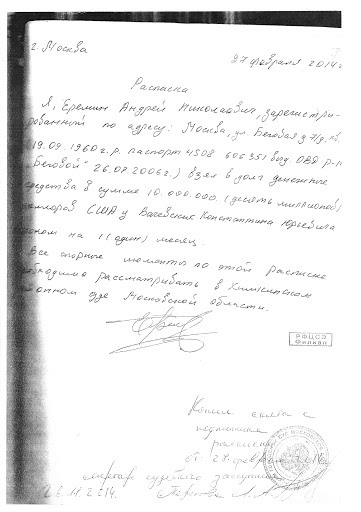 г. Москва
27 февраля 2014г.
Расписка
Я, Еремин Андрей Николаевич, зарегистри-
рованный по адресу: Москва, ул. Беговая д
19.09.1960 г.р. паспорт 4508 606351 выд ОВД р-н
"Беговой" 26.08.2006г.) взял в долг денежные
средства в сумме 10.000.000. (десять миллионов)
долларов США у Константина Юрьевича
сроком на 1 (один) месяц.
Все спорные моменты по этой расписке
необходимо рассматривать в Химкинском
суде Московской области.
РФЦСЭ
Филиал
Копия снята с
подлинника
расписки
от 27 февраля
секретарь судебного заседания
2014.